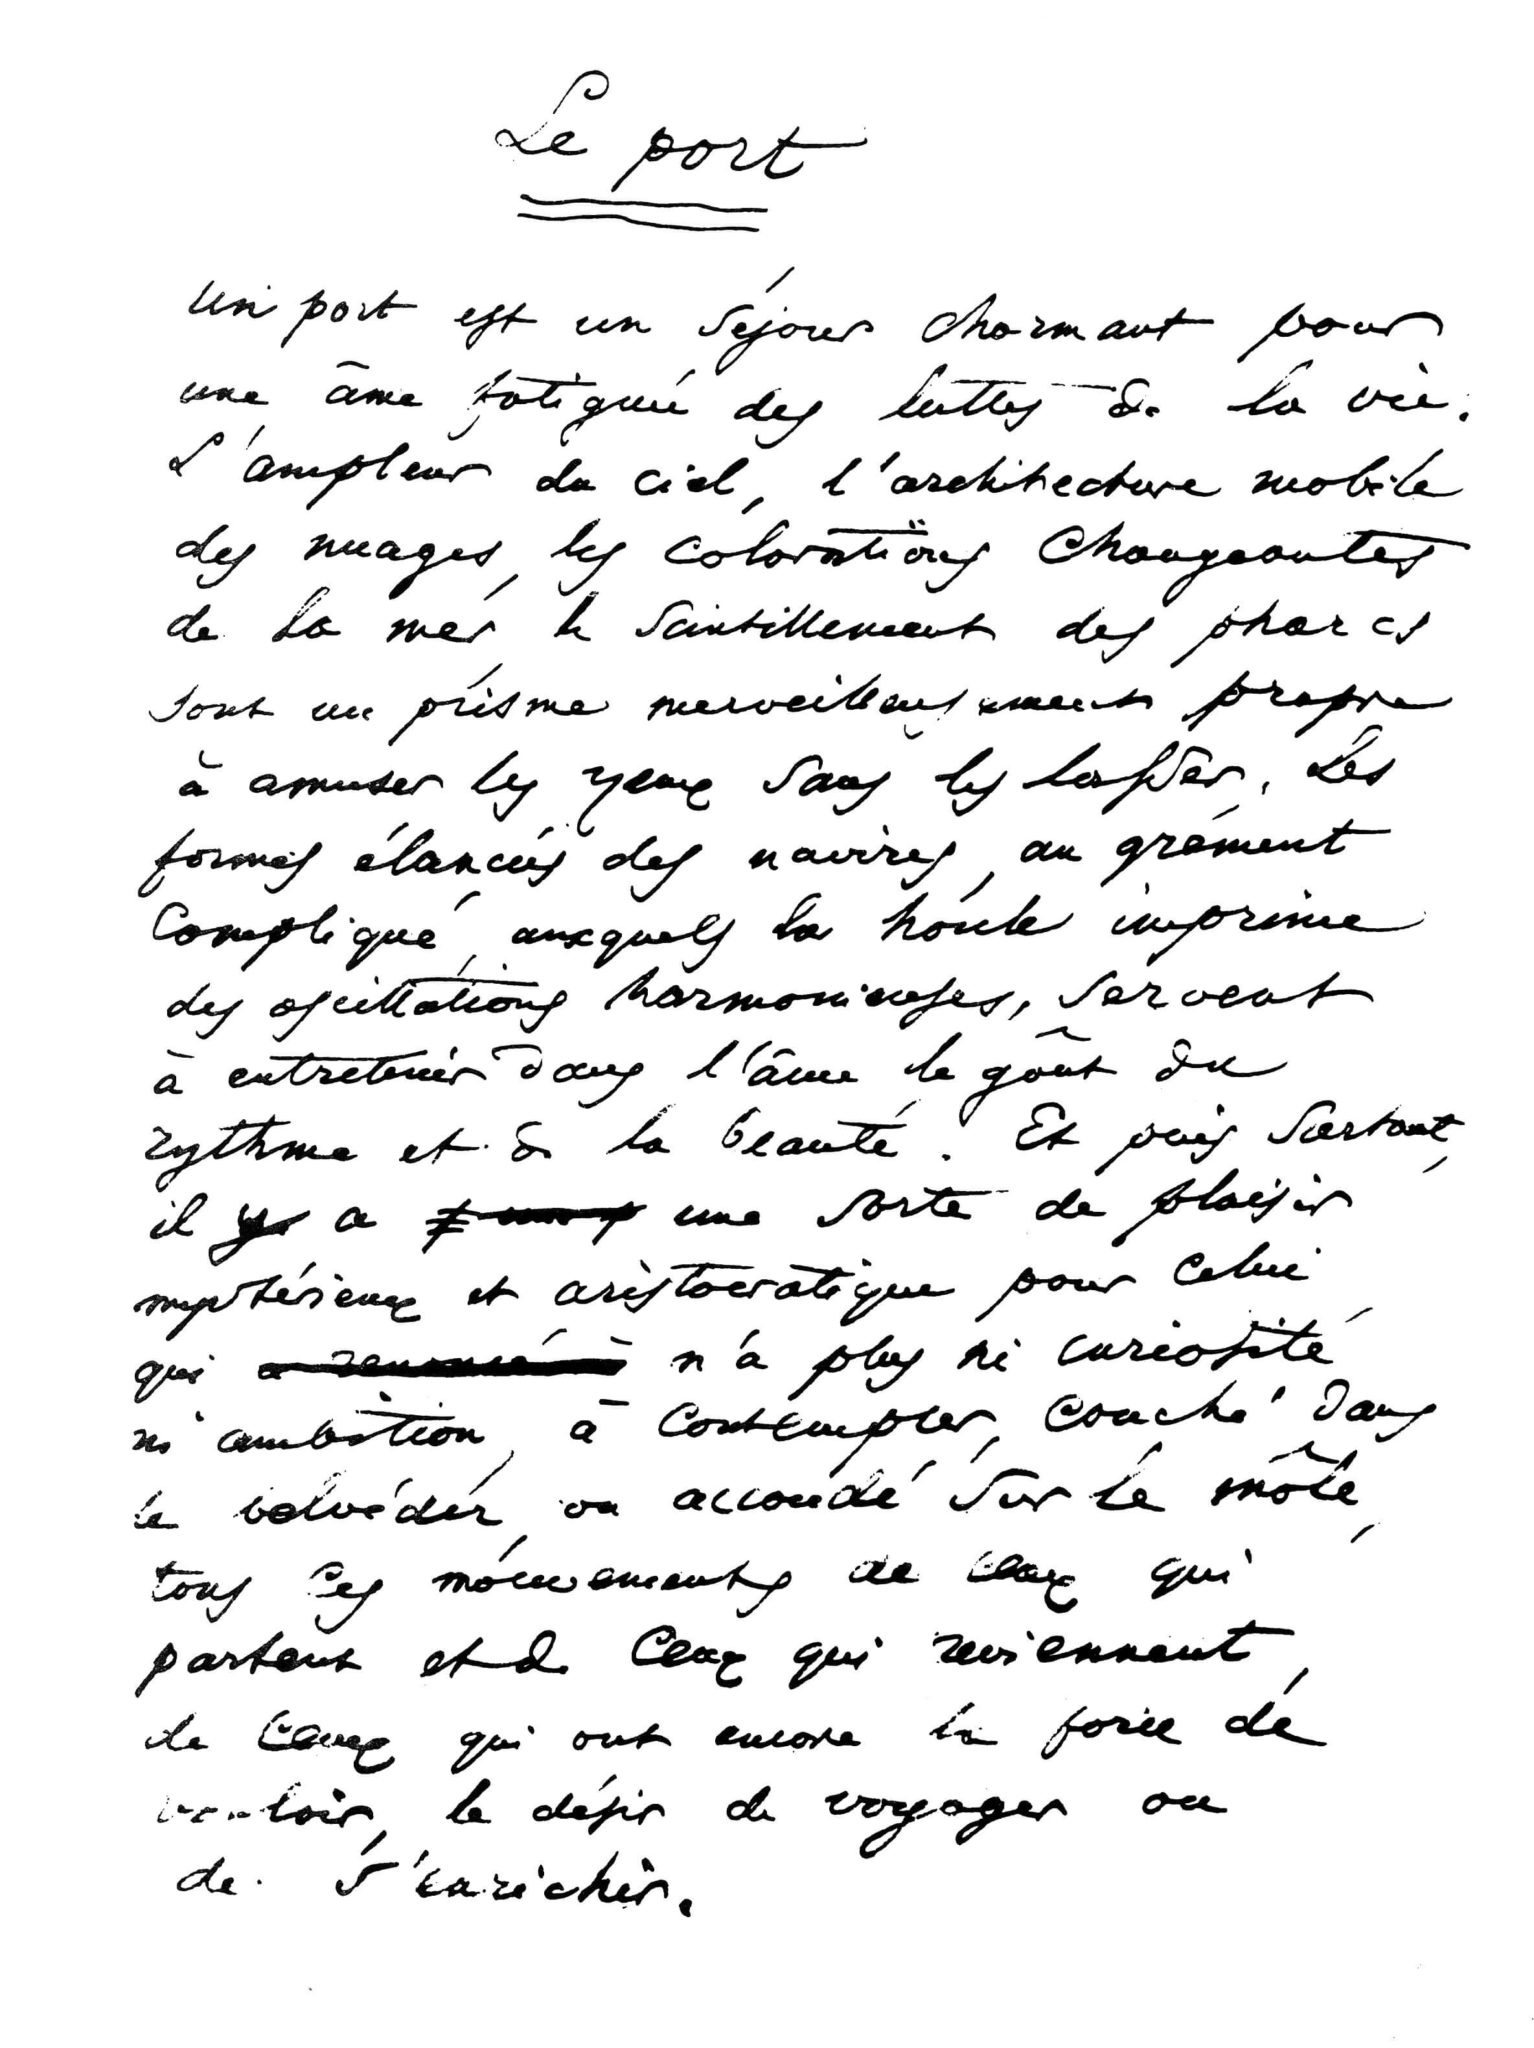 Le port
un port est un séjour charmant pour
une âme fatiguée des luttes de la vie.
L'ampleur du ciel, l'architecture mobile
des nuages, les colorations changeantes
de la mer, le scintillement des phares
sont un prisme merveilleusement propre
à amuser les yeux sans les lasser. Les
formes élancées des navires, au grément
compliqué, auxquels la houle imprime
des oscillations harmonieuses, servent
à entretenir dans l'âme le goût du
rythme et de la beauté. Et puis, surtout,
il y a une sorte de plaisir
mystérieux et aristocratique pour celui
qui a renoncé à n'a plus ni curiosité
ni ambition, à contempler, couché dans
le belvéder, ou accoudé sur le môle,
tous ces mouvements de ceux qui
partent et de ceux qui reviennent,
de ceux qui ont encore la force de
vouloir, le désir de voyager ou
de s'enrichir.